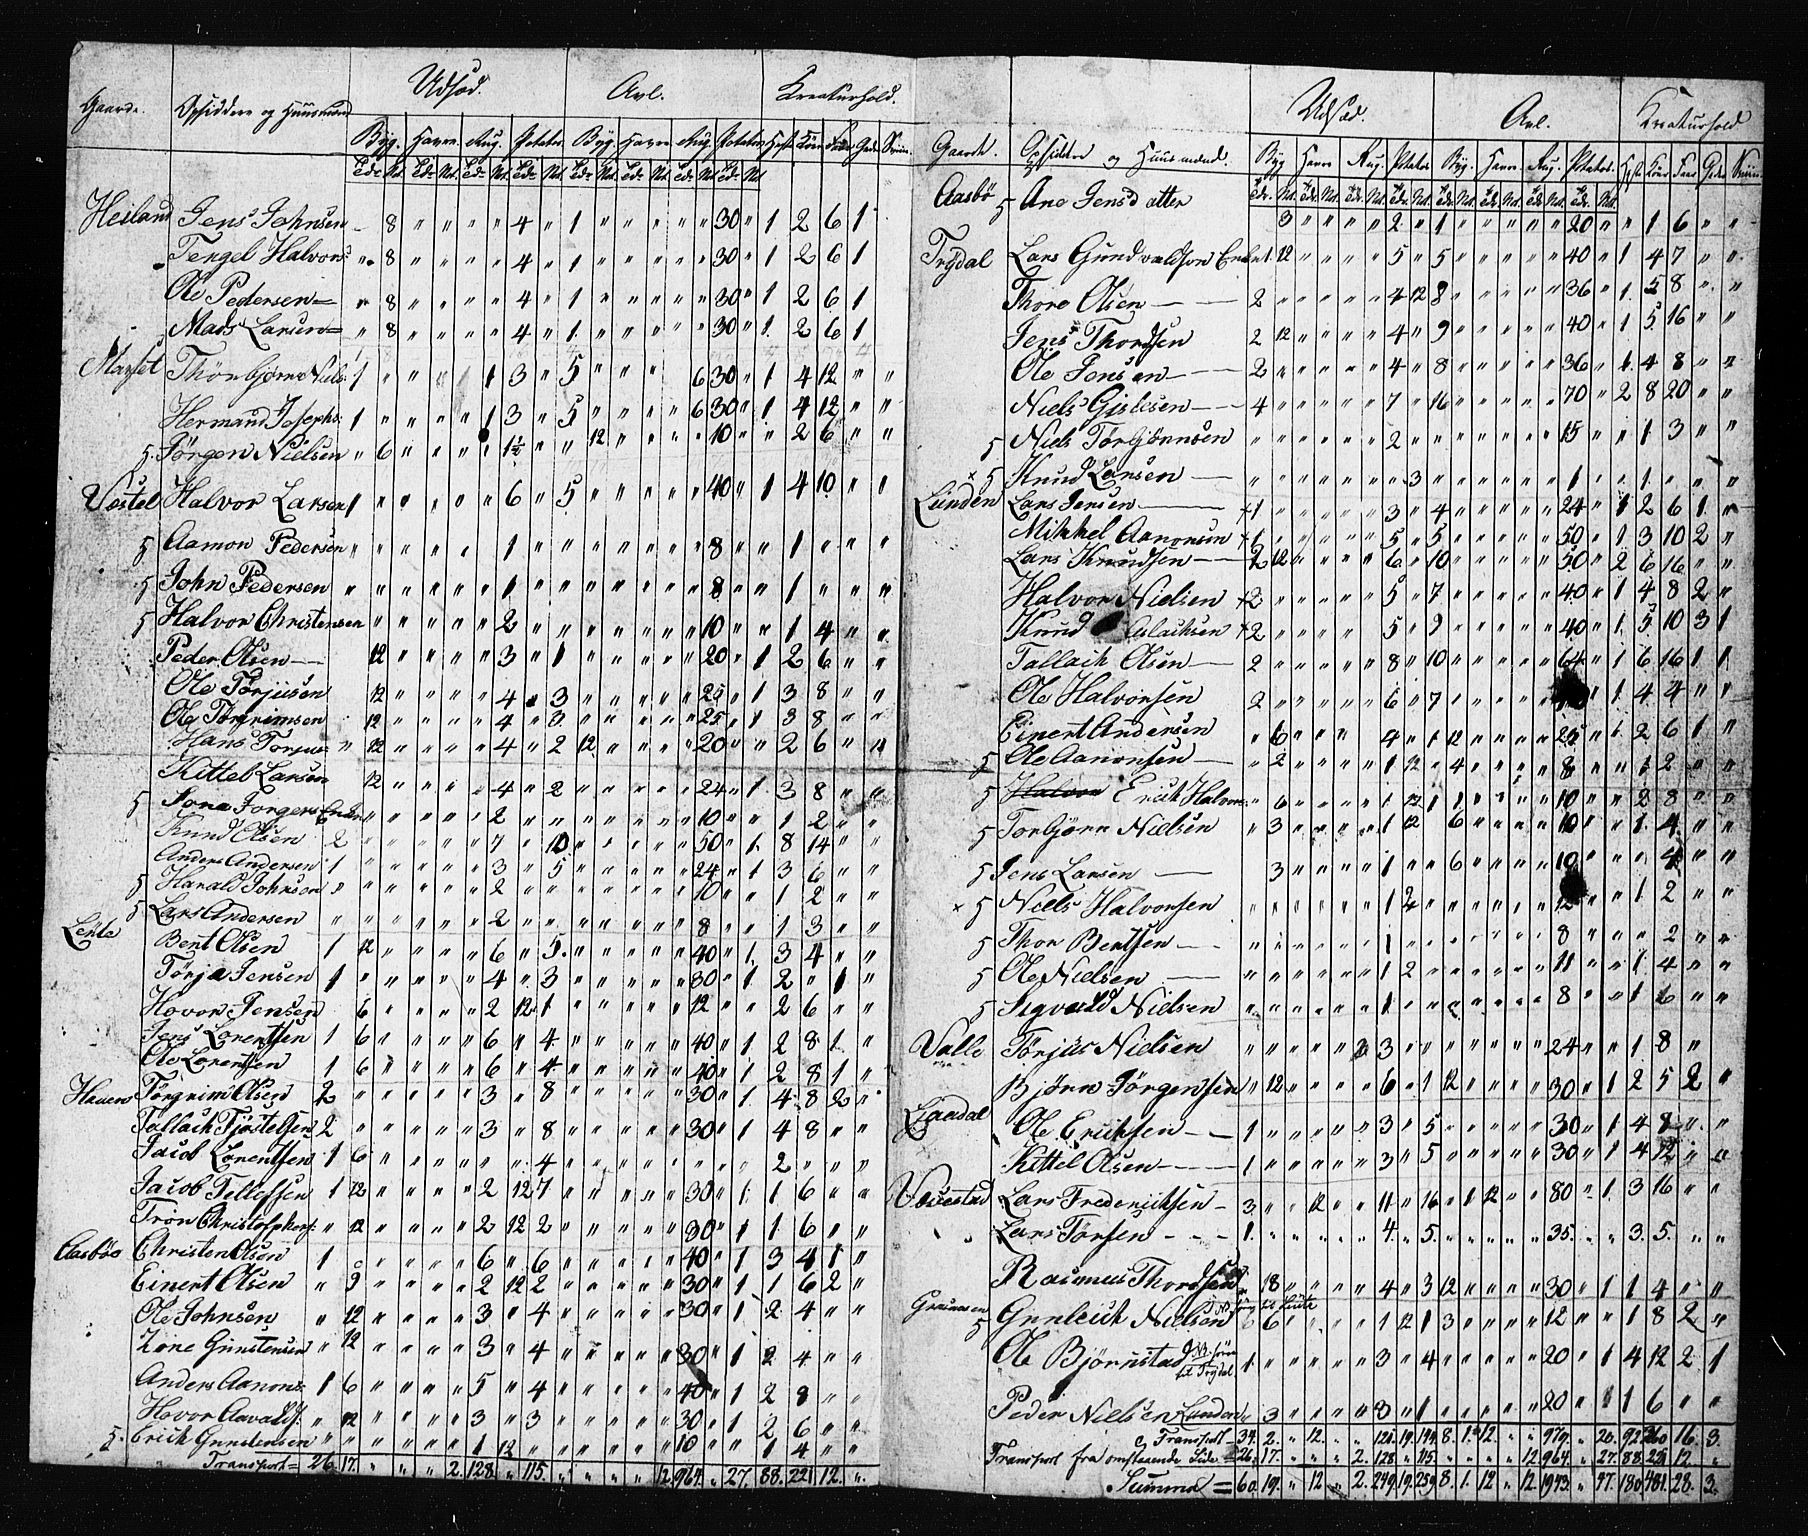 Gaarde. Opsiddere og Huusmænd Udsæd. Avl. Kreaturhold.
Byg. Havre. Rug. Potetes Byg. Havre Rug. Potetes Heste Köer Faar Geder Sviin
Heiland Jens Johnsen 〃 8 〃 〃 〃 〃 4 〃 1 〃 〃 〃 〃 〃 30 〃 1 2 6 1
Tengel Halvors 〃 8 〃 〃 〃 〃 4 〃 1 〃 〃 〃 〃 〃 30 〃 1 2 6 1
Ole Pedersen 〃 8 〃 〃 〃 〃 4 〃 1 〃 〃 〃 〃 〃 30 〃 1 2 6 1
Mads Larsen 〃 8 〃 〃 〃 〃 4 〃 1 〃 〃 〃 〃 〃 30 〃 1 2 6 1
Thorbjørn Niels 1 〃 〃 〃 1 3 〃 5 〃 〃 〃 6 30 〃 1 4 12 〃 〃
Hermand Josephs: 1 〃 〃 〃 〃 1 3 〃 5 〃 〃 〃 〃 6 30 〃 1 4 12 〃 〃
5 Jörgen Nielsen 〃 6 〃 〃 〃 〃 1½ 〃 〃 12 〃 〃 〃 〃 10 〃 〃 2 6 〃 〃
Halvor Larsen 1 〃 〃 〃 〃 6 〃 5 〃 〃 〃 〃 〃 40 〃 1 4 10 〃 〃
5 Aamon Pedersen 〃 〃 〃 〃 〃 1 〃 〃 〃 〃 〃 〃 8 〃 〃 1 〃 〃 〃
5 John Pedersen 〃 〃 〃 〃 〃 1 〃 〃 〃 〃 〃 〃 8 〃 〃 1 〃 〃 〃
5 Halvor Christensen 〃 〃 〃 〃 〃 2 〃 〃 〃 〃 〃 〃 10 〃 〃 1 4 〃 〃
Peder Olsen 12 〃 〃 〃 〃 3 〃 1 〃 〃 〃 〃 〃 20 〃 1 2 6 〃 〃
Ole Törjusen 12 〃 〃 〃 〃 4 〃 3 〃 〃 〃 〃 〃 25 〃 1 3 8 〃 〃
Ole Torgrimsen 12 〃 〃 〃 〃 4 〃 3 〃 〃 〃 〃 〃 25 〃 1 3 8 〃 〃
Hans Torjus 〃 12 〃 〃 〃 〃 4 〃 2 12 〃 〃 〃 〃 20 〃 〃 2 6 〃 〃
Kittel Larsen 12 〃 〃 〃 〃 4 〃 2 〃 〃 〃 〃 〃 24 〃 1 3 8 〃 〃
5 〃 〃 〃 〃 〃 2 〃 〃 〃 〃 〃 〃 10 〃 〃 1 2 〃 〃
Knud Olsen 2 〃 〃 〃 〃 7 〃 10 〃 〃 〃 〃 〃 50 〃 1 8 14 〃 〃
Anders Andersen 1 〃 〃 〃 〃 3 〃 5 〃 〃 〃 〃 〃 24 〃 1 3 6 〃 〃
5 Harald Johnsen 〃 〃 〃 〃 〃 2 〃 〃 〃 〃 〃 〃 10 〃 〃 1 2 〃 〃
5 Lars Andersen 〃 〃 〃 〃 〃 2 〃 〃 〃 〃 〃 〃 8 〃 〃 1 3 〃 〃
Bent Olsen 1 12 〃 〃 〃 〃 6 〃 5 〃 〃 〃 〃 〃 40 〃 1 3 4 〃 〃
Törja Jensen 1 〃 〃 〃 〃 4 〃 3 〃 〃 〃 〃 〃 30 〃 1 2 〃 1 〃
Hovor Jensen 6 〃 〃 〃 〃 2 12 1 〃 〃 〃 〃 〃 12 〃 〃 2 6 〃 〃
Jens Lorentsen 1 6 〃 〃 〃 〃 6 〃 4 〃 〃 〃 〃 〃 40 〃 1 2 8 1 〃
Ole Lorentsen 1 6 〃 〃 〃 〃 6 〃 4 〃 〃 〃 〃 〃 40 〃 1 2 8 1 〃
Törgrim Olsen 2 〃 〃 〃 〃 3 〃 8 〃 〃 〃 〃 〃 30 〃 1 4 8 2 〃
Tallach Tjöstelsen 2 〃 〃 〃 〃 3 〃 8 〃 〃 〃 〃 〃 30 〃 1 4 8 〃 〃
Jacob Lorentsen 1 6 〃 〃 〃 〃 〃 〃 4 〃 〃 〃 〃 〃 〃 〃 〃 2 〃 〃 〃
Jacob Tellefsen 1 12 〃 〃 〃 〃 2 12 7 〃 〃 〃 〃 〃 30 〃 1 1 6 〃 〃
Trön Christophers: 〃 12 〃 〃 〃 〃 2 12 2 〃 〃 〃 〃 〃 30 〃 1 1 6 〃 〃
Aasböe Christen Olsen 1 〃 〃 〃 〃 〃 6 〃 6 〃 〃 〃 〃 〃 40 〃 1 3 4 1 〃
Einert Olsen 〃 9 〃 〃 〃 〃 2 12 2 〃 〃 〃 〃 〃 30 〃 1 1 6 2 〃
Ole Johnsen 〃 12 〃 〃 〃 〃 3 〃 4 〃 〃 〃 〃 〃 30 〃 1 2 4 〃 〃
Zone Gunstensen 〃 12 〃 〃 〃 〃 3 〃 4 〃 〃 〃 〃 〃 30 〃 1 2 4 〃 〃
Anders Aanons: 1 6 〃 〃 〃 〃 5 〃 4 〃 〃 〃 〃 〃 40 〃 1 2 8 〃 〃
Hovor Aavalds: 〃 12 〃 〃 〃 〃 3 〃 3 〃 〃 〃 〃 〃 30 〃 1 2 6 〃 〃
5. Erich Gunstensen 〃 〃 〃 〃 〃 〃 1 12 〃 〃 〃 〃 〃 〃 10 〃 〃 1 4 〃 〃
Transport = 26 17. 〃 〃 〃 2. 128. 〃 115. 〃 〃 〃 〃 12. 964. 〃 27. 88. 221. 12. 〃
Gaarde. Opsiddere og Huusmænd. Udsæd. Avl. Kreaturhold
Byg Havre Rug. Potetes Byg. Havre. Rug. Potetes. Heste Köer Faar Geder Sviin
Aasbö 5 Ane Jensdatter 3 〃 〃 〃 〃 2 〃 1 〃 〃 〃 〃 〃 20 〃 〃 1 6 〃 〃
Trydal Lars Gundvaldsen Enke 1. 12 〃 〃 〃 〃 5 〃 5 〃 〃 〃 〃 〃 40 〃 1 4 7 〃 〃
Thore Olsen 2 〃 〃 〃 〃 〃 4 12 8 〃 〃 〃 〃 〃 36 〃 1 5 8 〃 〃
Jens Thordsen 2 12 〃 〃 〃 〃 4 〃 9 〃 〃 〃 〃 〃 40 〃 1 5 16 〃 〃
Ole Jensen 2 〃 〃 〃 〃 〃 4 〃 8 〃 〃 〃 〃 〃 36 〃 1 4 8 〃 〃
Niels Gislesen 4 〃 〃 〃 〃 〃 7 〃 16 〃 〃 〃 〃 〃 70 〃 2 8 20 〃 〃
5 Niels Törbjönnsen 〃 〃 〃 〃 〃 〃 2 〃 〃 〃 〃 〃 〃 〃 15 〃 〃 1 3 〃 〃
× 5 Knud Larsen 〃 〃 〃 〃 〃 〃 〃 3 〃 〃 〃 〃 〃 〃 1 〃 〃 1 〃 〃 〃
Lunden Lars Jensen × 1 〃 〃 〃 〃 〃 3 〃 4 〃 〃 〃 〃 〃 24 〃 1 2 6 1 〃
Mikkel Aanonsen × 1 〃 〃 〃 〃 〃 5 〃 5 〃 〃 〃 〃 〃 50 〃 1 3 10 2 〃
Lars Knudsen 2 12 〃 〃 〃 〃 6 〃 10 〃 〃 〃 〃 〃 50 〃 2 6 16 〃 〃
Halvor Nielsen × 2 〃 〃 〃 〃 〃 5 〃 7 〃 〃 〃 〃 〃 40 〃 1 4 8 2 〃
Knud Aslacksen × 2 〃 〃 〃 〃 5 〃 9 〃 〃 〃 〃 〃 40 〃 1 5 10 3 1
Tallach Olsen 2 〃 〃 〃 〃 〃 8 〃 10 〃 〃 〃 〃 〃 64 〃 1 6 16 1 1
Ole Halvorsen 2 〃 〃 〃 〃 〃 6 〃 7 〃 〃 〃 〃 〃 〃 1 4 4 〃 〃
Einert Andersen 〃 6 〃 〃 〃 4 〃 1 12 〃 〃 〃 〃 25 〃 1 2 6 1 〃
5 Ole Aanonsen 〃 2 〃 〃 〃 〃 1 12 〃 4 〃 〃 〃 〃 8 〃 〃 1 2 〃 〃
5 Halvor Erick Halvors: 〃 6 〃 〃 〃 〃 1 12 1 〃 〃 〃 〃 10 〃 〃 2 8 〃 〃
5 Torbjörn Nielsen 〃 3 〃 〃 〃 〃 1 12 〃 6 〃 〃 〃 〃 10 〃 〃 1 4 〃 〃
5 Jens Larsen 3 〃 〃 〃 〃 1 〃 〃 6 〃 〃 〃 〃 10 〃 〃 〃 4 〃 〃
× 5 Niels Halvorsen 〃 〃 〃 〃 〃 〃 1 2 〃 〃 〃 〃 〃 〃 12 〃 〃 1 2 〃 〃
5 Thor Bentsen 〃 〃 〃 〃 〃 〃 1 〃 〃 〃 〃 〃 〃 〃 8 〃 〃 〃 2 〃 〃
5 Ole Nielsen 〃 〃 〃 〃 〃 〃 1 2 〃 〃 〃 〃 〃 〃 11 〃 〃 1 4 〃 〃
5 Sigvald Nielsen 〃 〃 〃 〃 〃 〃 1 〃 〃 〃 〃 〃 〃 〃 8 〃 〃 1 6 〃 〃
Valle Törjus Nielsen 〃 〃 〃 〃 〃 3 〃 〃 〃 〃 〃 〃 〃 24 〃 〃 1 8 〃
Björn Jörgensen 〃 12 〃 〃 〃 〃 6 〃 1 12 〃 〃 〃 〃 30 〃 1 2 5 2 〃
Ole Eriksen 1 〃 〃 〃 〃 〃 3 〃 5 〃 〃 〃 〃 〃 30 〃 1 4 8 〃 〃
Kittel Olsen 1 〃 〃 〃 〃 〃 3 〃 5 〃 〃 〃 〃 〃 30 〃 1 4 12 〃 〃
Lars Frederiksen 3 〃 〃 12 〃 〃 11 〃 16 〃 1 12 〃 〃 80 〃 1 3 16 〃 〃
Lars Törsen 1. 〃 〃 〃 〃 〃 4. 〃 5. 〃 〃 〃 〃 〃 35. 〃 〃 3. 5. 〃 〃
Rasmus Thordsen 18 〃 〃 〃 〃 4 〃 3 12 〃 〃 〃 〃 30 〃 1 1 4 〃 〃
5 Gunleich Nielsen 6 〃 〃 〃 〃 1 12 1 3 〃 〃 〃 〃 12 〃 〃 1 8 2 〃
Ole Björnstad til Trydal 1 〃 〃 〃 〃 〃 3 〃 4 〃 〃 〃 〃 〃 20 〃 1 4 12 2 1
Peder Nielsen Lunden 〃 3 〃 〃 〃 〃 3 〃 1 〃 〃 〃 〃 〃 20 〃 〃 1 6 〃 〃
Transport 34. 2. 〃 12. 〃 〃 121. 19. 144. 8. 1. 12. 〃 〃 979. 〃 20. 92. 260 16. 3.
Transport fra omstaaende Side = 26. 17. 〃 〃 〃 2. 128. 〃 115. 〃 〃 〃 〃 12. 964. 〃 27. 88. 221 12. 〃
Summa = 60. 19. 〃 12 〃 2. 249. 19. 259. 8. 1. 12 〃 12. 1943. 〃 47. 180. 481. 28. 3.